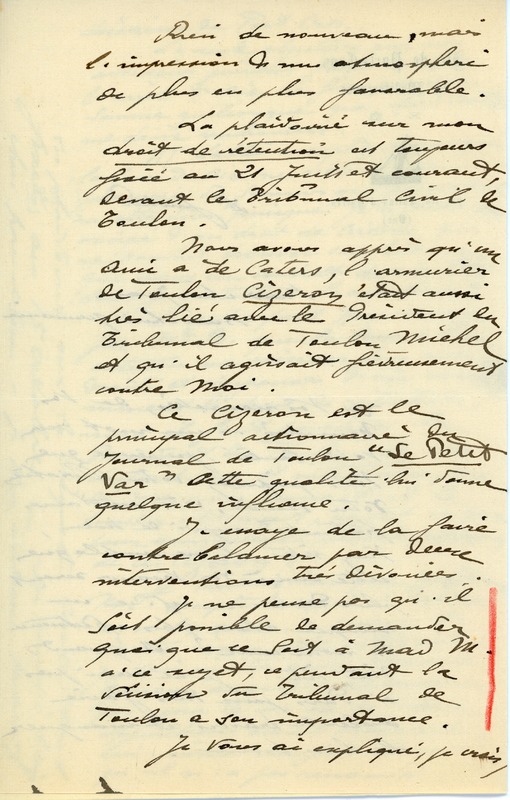 Rien de nouveau, mais
l'impression d'une atmosphère
de plus en plus favorable.
La plaidoirie sur mon
droit de rétention est toujours
fixée au 21 Juillet courant,
devant le Tribunal Civil de
Toulon.
Nous avons appris qu'un
ami à de Caters, l'armurier
de Toulon Cizeron, était aussi
très lié avec le Président du
Tribunal de Toulon Michel
et qu'il agissait fiévreusement
contre moi.
Ce Cizeron est le
principal actionnaire du
Journal de Toulon "Le Petit
Var" Cette qualité lui donne
quelque influence.
J'essaye de la faire
contrebalancer par deux
interventions très dévouées.
Je ne pense pas qu'il
soit possible de demander
quoi que ce soit à Mad M.
à ce sujet, cependant la
décision du Tribunal de
Toulon a son importance.
Je vous ai expliqué, je crois,